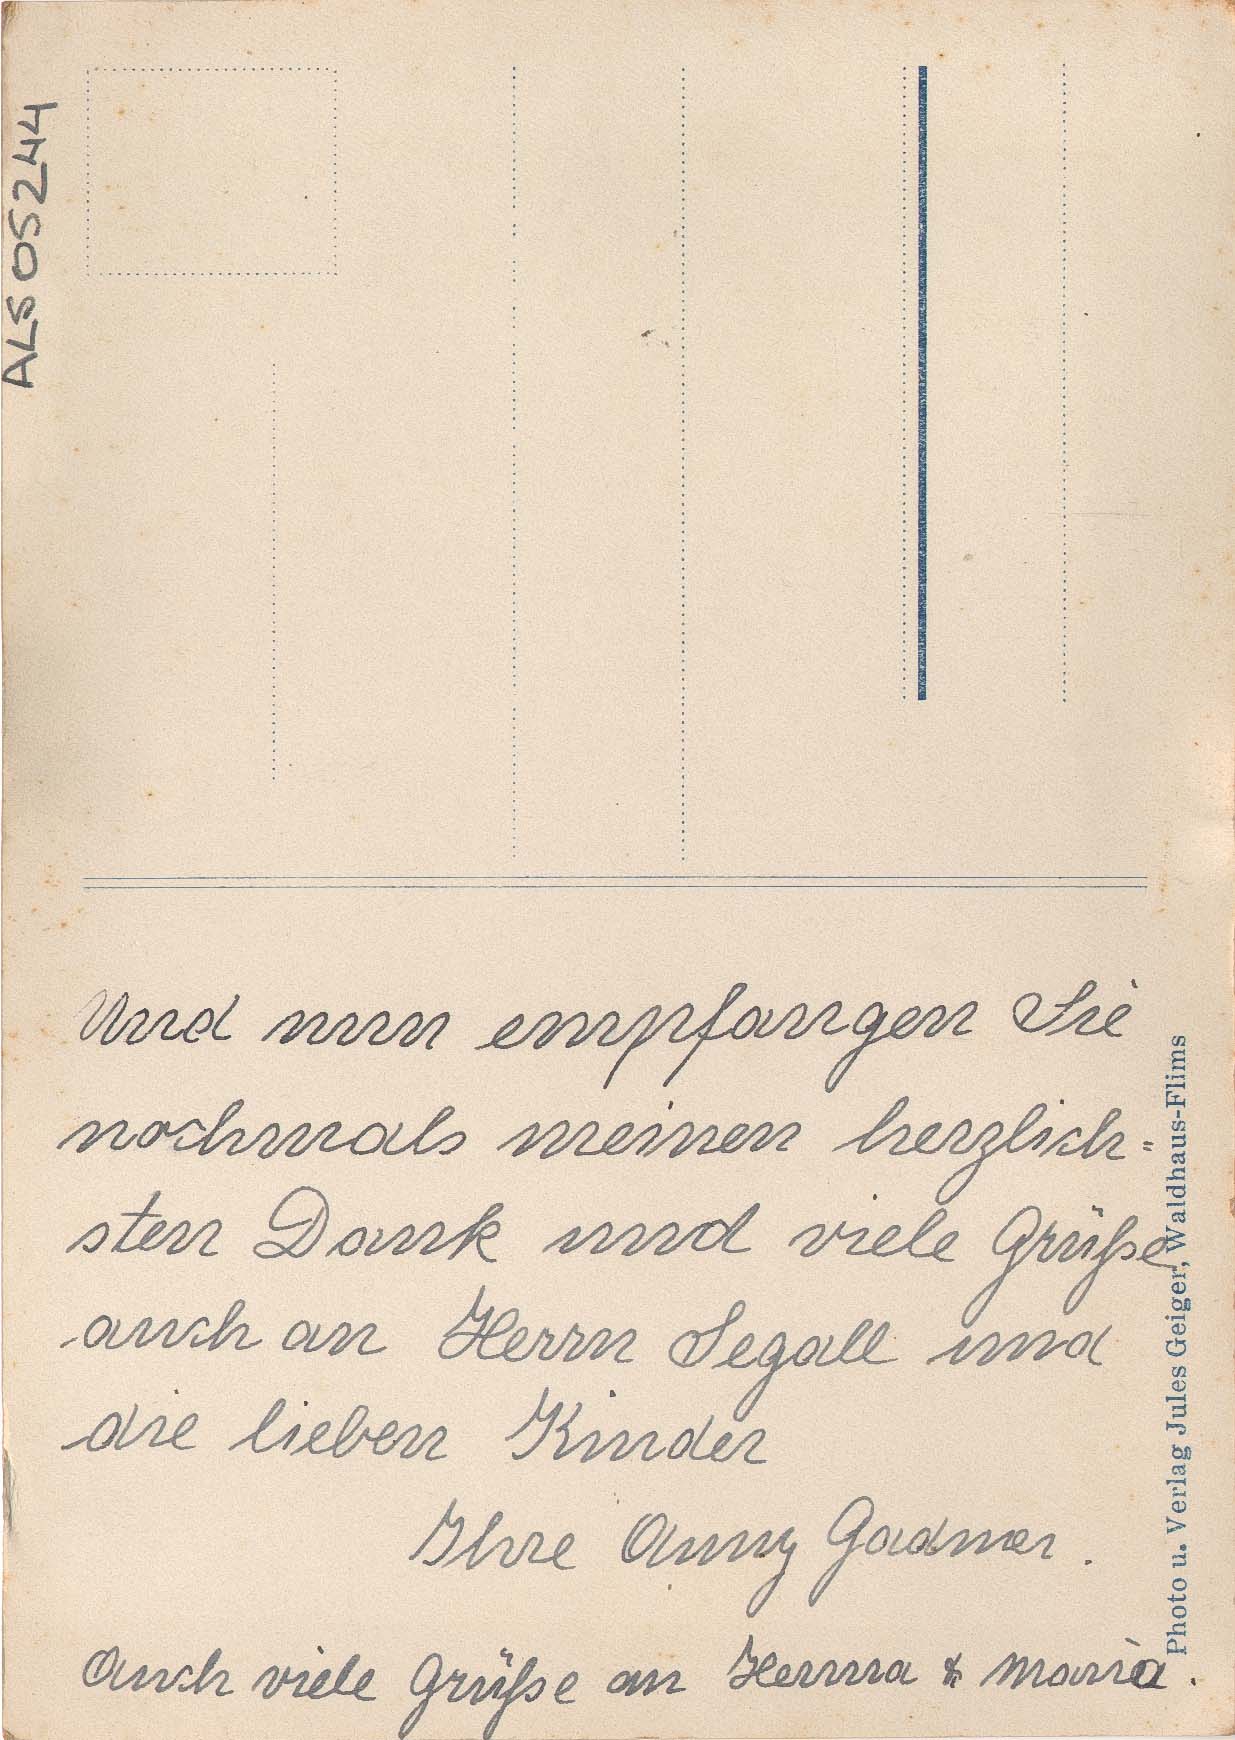 ALS 05244
Und nun empfangen Sie
nochmals meinen herzlich=
sten Dank und viele Grüße
auch an Herrn Segall und
die lieben Kinder
Ihre Anny Gadmer.
Auch viele Grüße an Hemma & Maria.
Photo u. Verlag Jules Geiger, Waldhaus-Flims